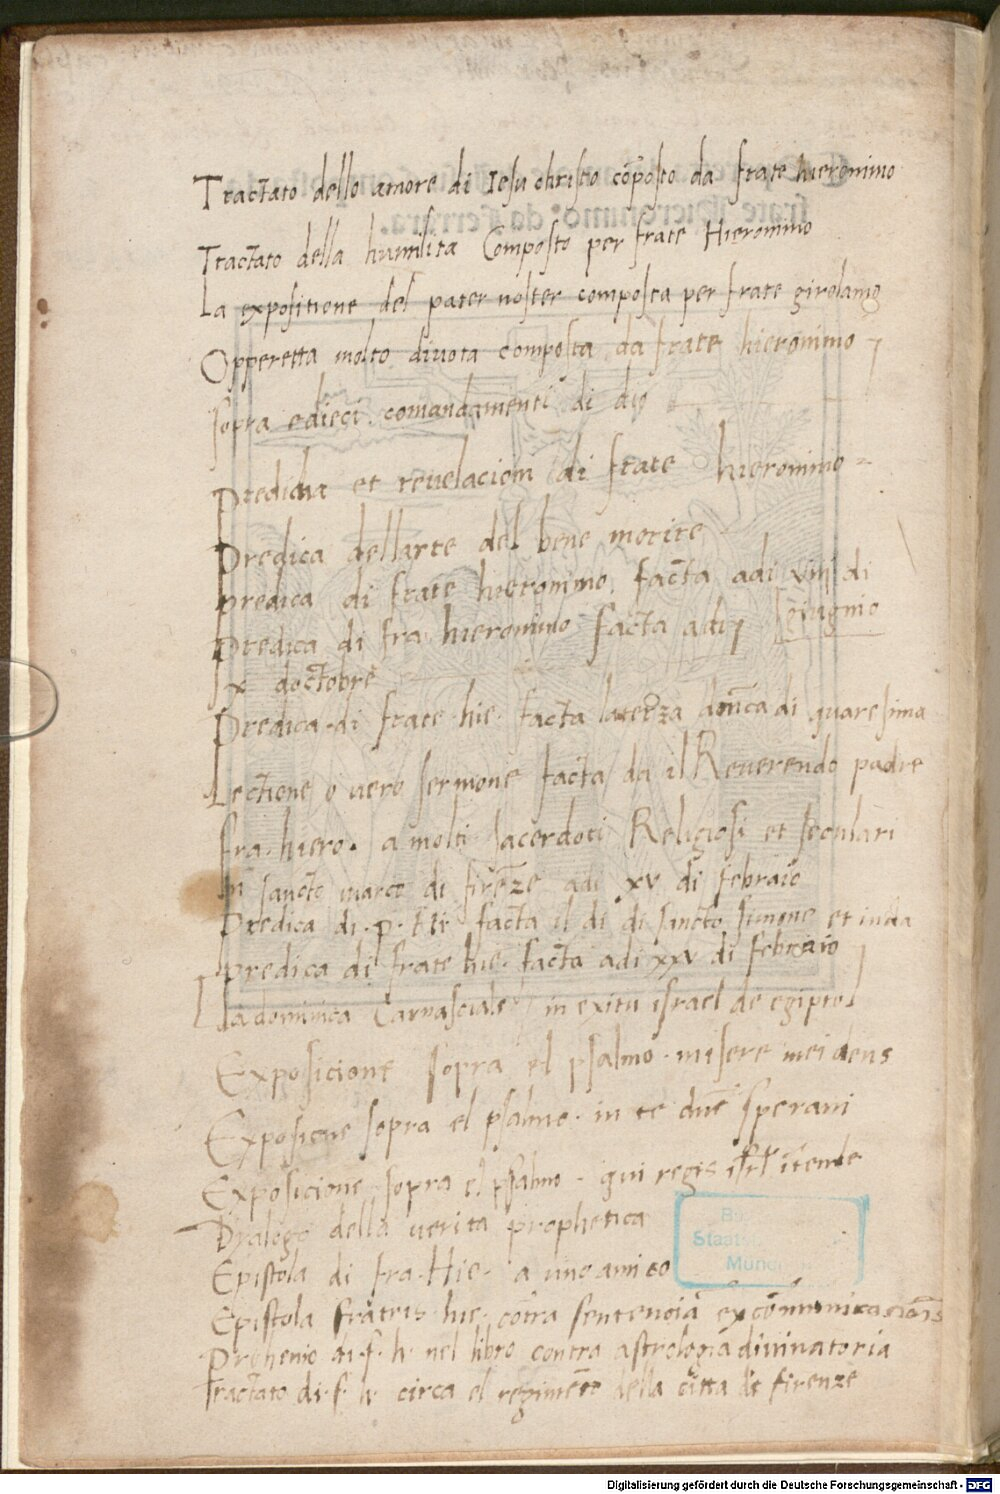 Tractato dello amore di Iesu christo cōposto da frate hieronimo
Tractato della humilita Composto per frate Hieronimo
La expositione del pater noster composta per frate girolamo
Opperetta molto diuota composta da frate hieronimo
sopra edieci comandamenti di dio
Predicha et reuelaciom di frate hieronimo
Predica dellarte del bene morire
Predica di frate hieronimo facta adi viii di
giugnio
Predica di fra hieronimo facta adi
x doctobre
Predica di frate hie. facta la terza dnīca di quaresima
Lectione o uero sermone facta da il Reuerendo padre
fra. hiero. a molti sacerdoti Religiosi et seculari
in sancto marco di firēze adi xv di febraio
Predica di. p. Hi facta il di di sancto simone et iuda
Predica di frate hie. facta adi xxv di febraio
La dominica Carnasciale in exitu israel de egipto
Exposicione sopra el psalmo. misere mei deus
Exposicone sopra el psalmo. in te dn̄e speraui
Exposicione sopra el psalmo. qui regis isrl ītende
Dyalogo della uerita prophetica
Epistola di fra. Hie. a uno amico
Epistola fratris hie. cōtra sentenciā excōmunicacionis
Prohemio di. f. h. nel libro contra astrologiā diuinatoria
Tractato di. f. h. circa el regimēto della citta di firenze
Staats
Münc
Digitalisierung gefördert durch die Deutsche Forschungsgemeinschaft - DFG